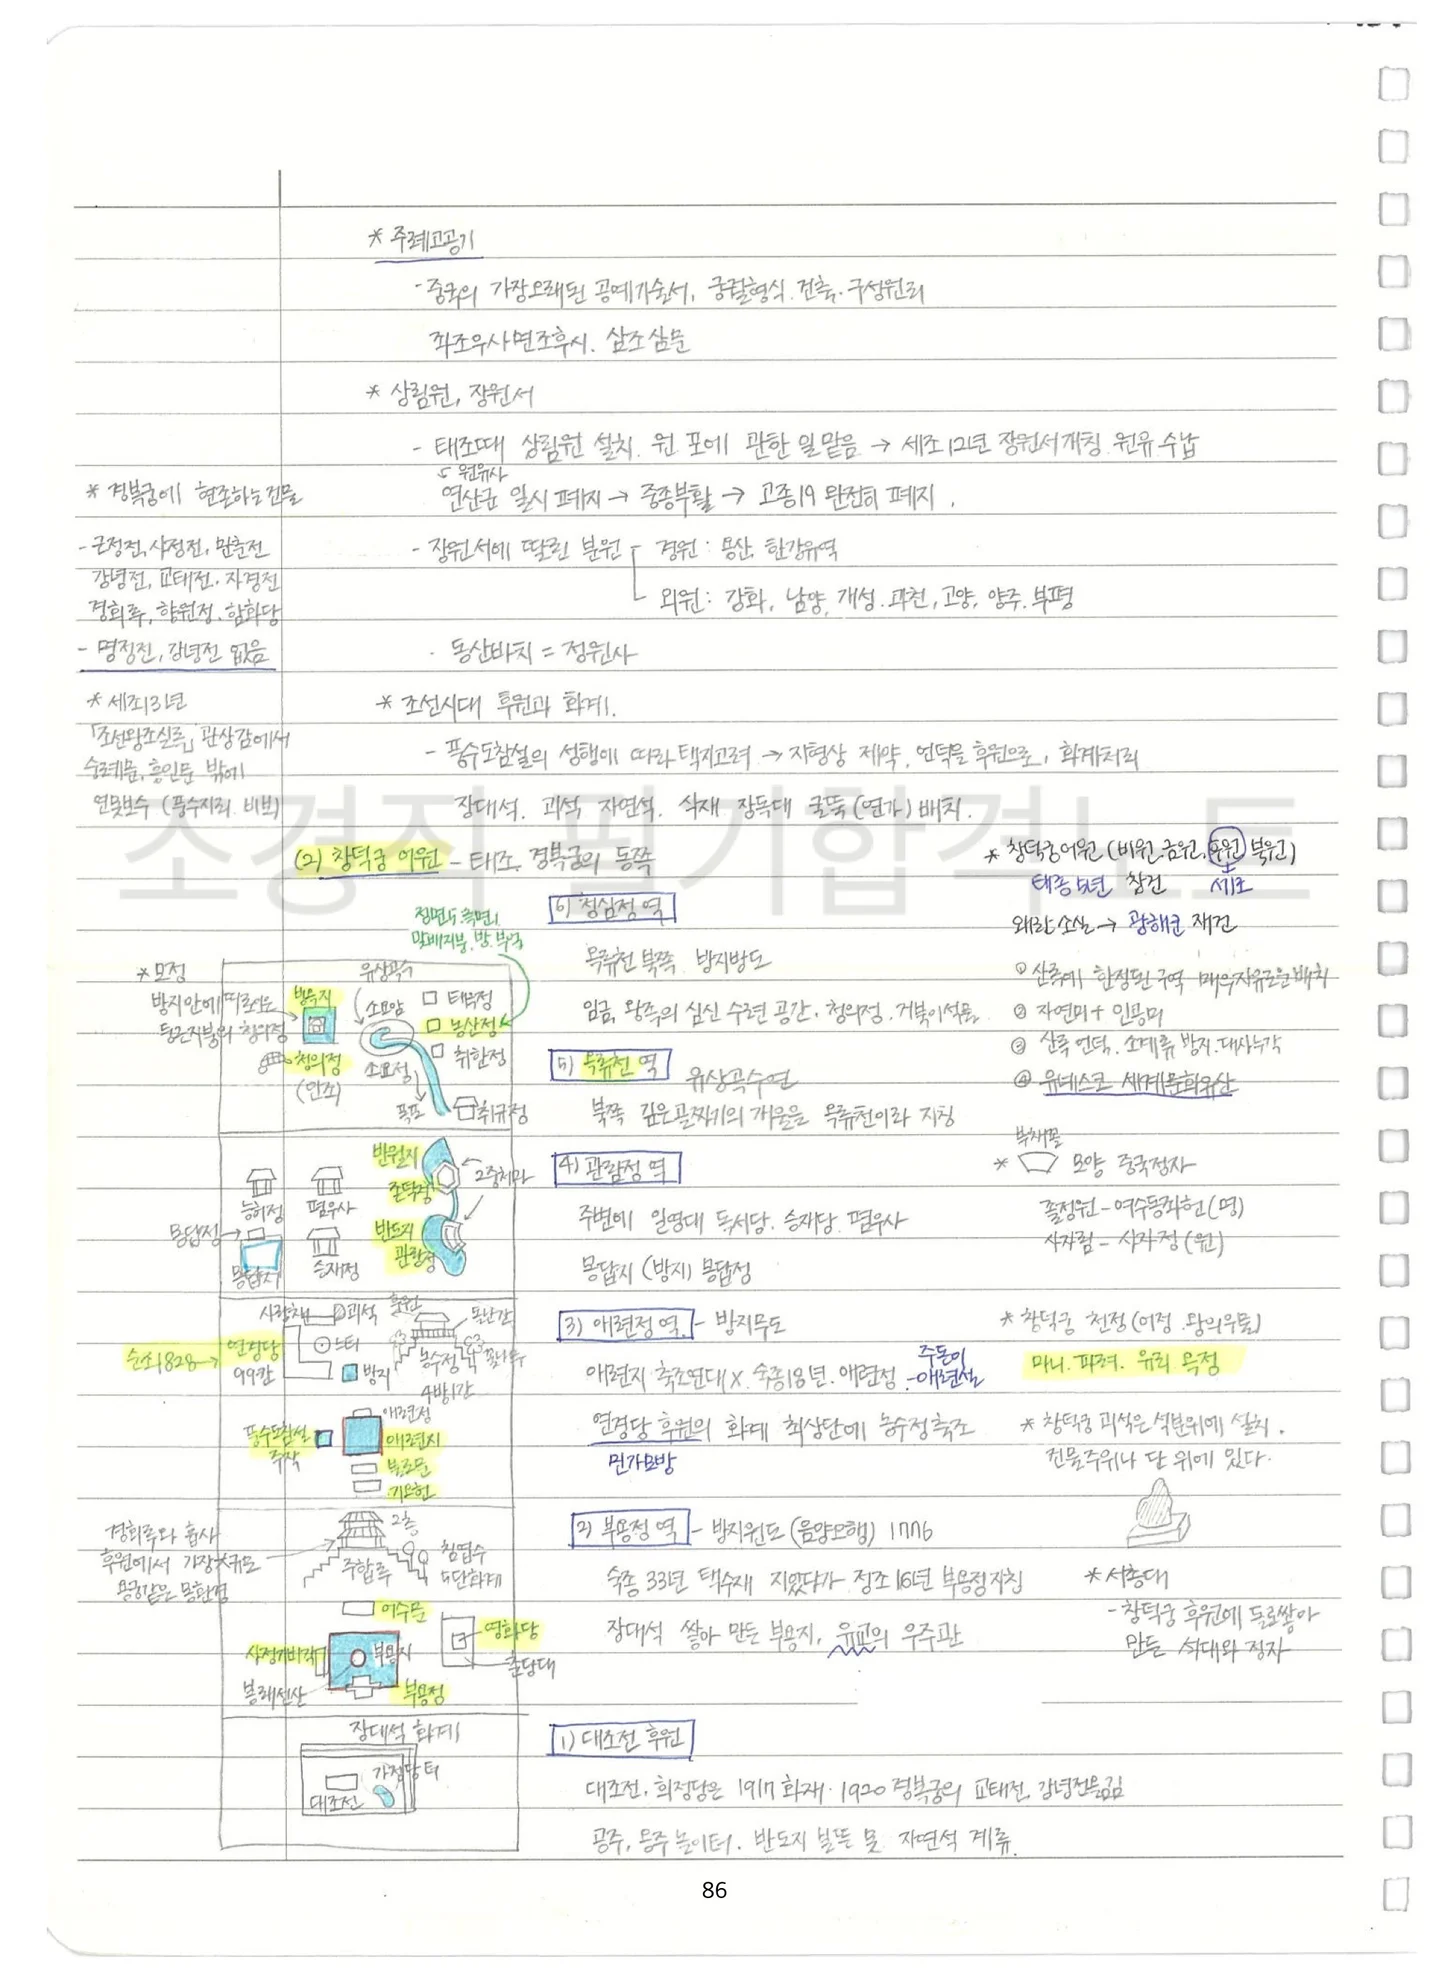 * 주례고공기
- 중국의 가장오래된 공예기술서, 궁궐형식.건축.구성원리
좌조우사면조후시. 삼조삼문
* 상림원, 장원서
- 태조때 상림원 설치. 원.포에 관한 일맡음 → 세조12년 장원서개칭. 원유.수납
↳ 원유사
연산군 일시 폐지 → 중종부활 → 고종19 완전히 폐지.
- 장원서에 딸린 분원
경원 : 용산, 한강유역
외원 : 강화, 남양, 개성.과천, 고양, 양주.부평
· 동산바치 = 정원사
* 경복궁에 현존하는건물
- 근정전, 사정전, 만춘전
강녕전, 교태전. 자경전
경회루, 향원정, 함화당
- 명정전, 강녕전 없음
* 세조31년
「조선왕조실록」 관상감에서
숭례문, 흥인문 밖에
연못보수 (풍수지리. 비보)
* 조선시대 후원과 화계.
- 풍수도참설의 성행에 따라 택지고려 → 지형상 제약. 언덕을 후원으로, 화계처리
장대석. 괴석. 자연석. 식재 장독대 굴뚝(연가) 배치.
조경직 필기합격노트
(2) 창덕궁 어원 - 태조. 경복궁의 동쪽
* 창덕궁어원 (비원.금원.후원.북원)
태종 5년 창건
세조
왜란 소실 → 광해군 재건
① 산록에 한정된 구역 매우자유로운배치
② 자연미 + 인공미
③ 산록 언덕. 소계류 방지.대사누각
④ 유네스코 세계문화유산
부채꼴
* 모양 중국정자
졸정원 - 여수동좌헌(명)
사자림 - 사자정(원)
* 창덕궁 천정(어정.왕의우물)
마니. 파려. 유리 옥정
* 창덕궁 괴석은 석분위에 설치.
건물주위나 단 위에 있다.
* 서총대
- 창덕궁 후원에 돌로쌓아
만든 석대와 정자
6) 청심정 역
옥류천 북쪽. 방지방도
임금, 왕족의 심신 수련 공간, 청의정. 거북이석물
5) 옥류천 역
유상곡수연
북쪽 깊은골짜기의 개울을 옥류천이라 지칭
4) 관람정 역
주변에 일영대 독서당. 승재당. 폄우사
몽답지 (방지) 몽답정
3) 애련정 역 - 방지무도
주돈이
애련지 축조연대X. 숙종18년. 애련정 - 애련설
연경당 후원의 화계 최상단에 농수정축조
민가모방
2) 부용정 역 - 방지원도 (음양오행) 1776
숙종 33년 택수재 지었다가 정조16년 부용정지칭
장대석 쌓아 만든 부용지, 유교의 우주관
1) 대조전 후원
대조전, 희정당은 1917 화재. 1920 경복궁의 교태전 강녕전을옮김
공주, 옹주 놀이터. 반도지 닮은 못 자연석 계류.
정면5 측면1
맞배지붕. 방. 부엌
* 모정
방지안에 띠로이은
둥근지붕의 청의정
방옥지
청의정
(안좌)
유상곡수
소요암
소요정
태극정
농산정
취한정
폭포
취규정
반월지
존덕정
2중처마
반도지
관람정
능허정
폄우사
몽답정
몽답지
승재정
사랑채
괴석
후원
목난간
순조1828 →
연경당
99칸
느티
방지
농수정
4방1칸
꽃나무
풍수도참설
주작
애련정
애련지
불로문
기오헌
경회루와 흡사
후원에서 가장大규모
용궁같은 몽환경
2층
주합루
침엽수
5단화계
어수문
사정기비각
부용지
영화당
춘당대
봉래선산
부용정
장대석 화계
가정당 터
대조전
86